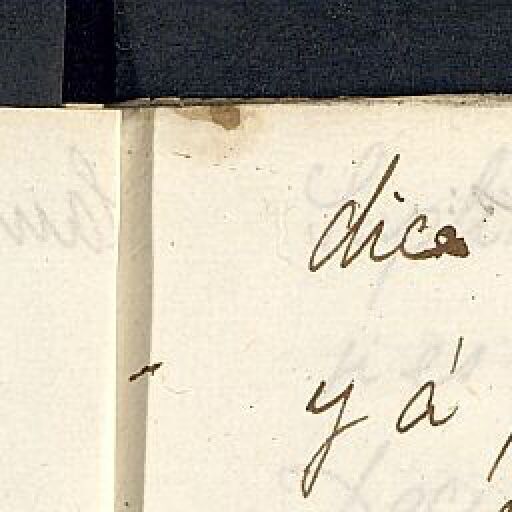 dice
y á